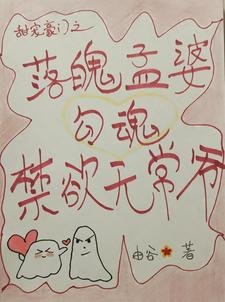 甜宠豪门之
落魄孟婆
勾魂
禁欲无常爷
由谷 著